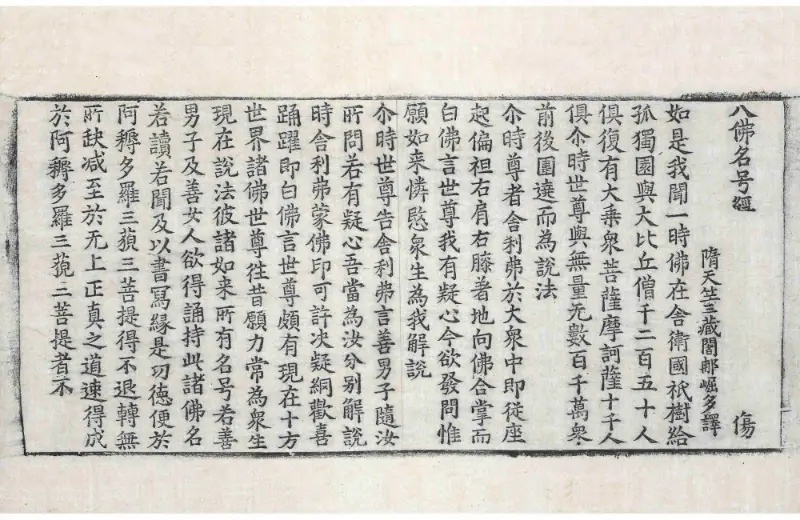 八佛名号經　傷
隋天竺三藏闍那崛多譯
如是我聞一時佛在舍衛國祇樹給
孤獨園與大比丘僧千二百五十人
俱復有大乘衆菩薩摩訶薩十千人
俱尒時世尊與無量无數百千萬衆
前後圍遶而為說法
尒時尊者舍利弗於大衆中即從座
起偏袒右肩右膝著地向佛合掌而
白佛言世尊我有疑心今欲發問惟
願如来憐愍衆生為我解說
尒時世尊告舍利弗言善男子隨汝
所問若有疑心吾當為汝分别解說
時舍利弗蒙佛印可許决疑網歡喜
踊躍即白佛言世尊頗有現在十方
世界諸佛世尊徃昔願力常為衆生
現在說法彼諸如来所有名号若善
男子及善女人欲得誦持此諸佛名
若讀若聞及以書寫緣是功德便於
阿耨多羅三藐三菩提得不退轉無
所缺减至於无上正真之道速得成
於阿耨多羅三藐三菩提者不